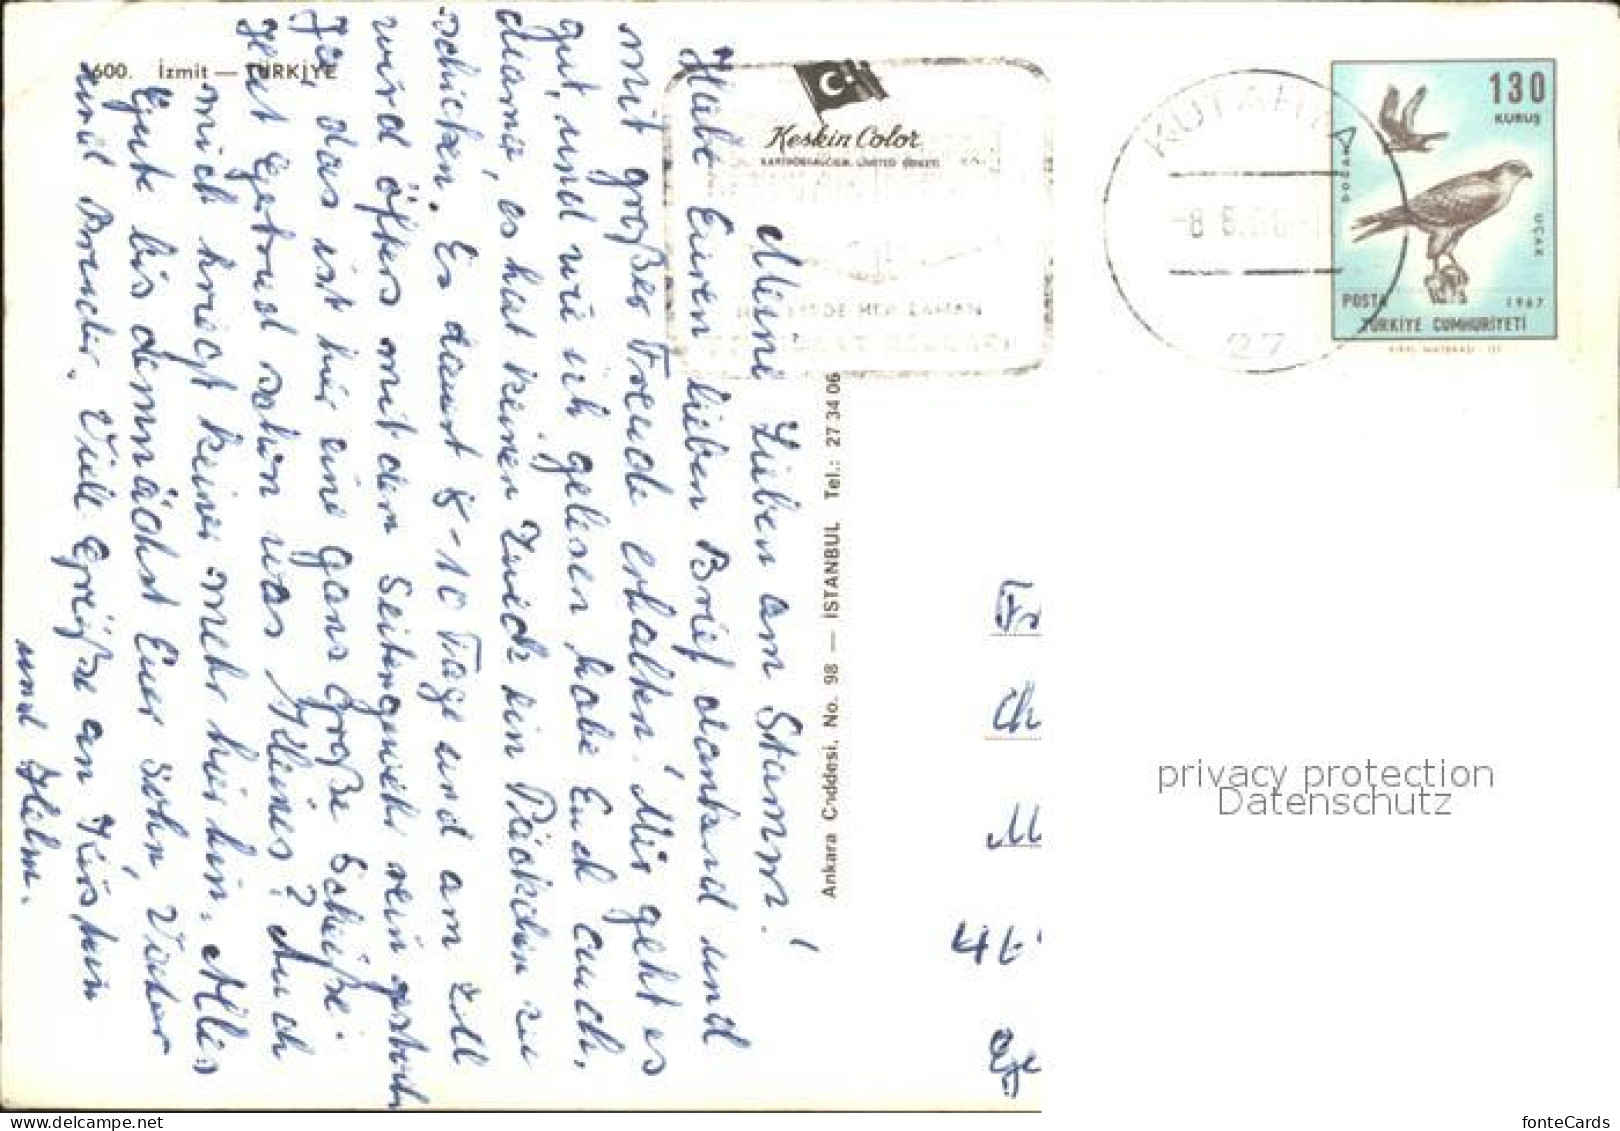 600. İzmit — TÜRKİYE
Keskin Color
KARTPOSTALCILIK LIMITED ŞİRKETİ
HER YERDE HER ZAMAN
KUTAHYA
-8 8.68.-
27
130
KURUŞ
DOĞAN
UÇAK
POSTA 1967
TÜRKİYE CUMHURİYETİ
Ankara Caddesi. No. 98 — İSTANBUL Tel.: 27 34 06
Meine Lieben am Stamm!
Habe Euren lieben Brief dankend und
mit großer Freude erhalten. Mir geht es
gut, und wie ich gelesen habe Euch auch.
Mama, es hat keinen Zweck ein Päckchen zu
schicken. Es dauert 8-10 Tage und am Zoll
wird öfters mit dem Seitengewehr rein gestochen
Ja, das ist hier eine ganz große Scheiße.
Hat Gertrud schon was Kleines? Auch
mich kriegt keiner mehr hier hin. Alles
Gute bis demnächst Euer Sohn, Vater
und Bruder. Viele Grüße an
und Helm.
Fr
Ch
M
Ge
privacy protection
Datenschutz
fonteCards